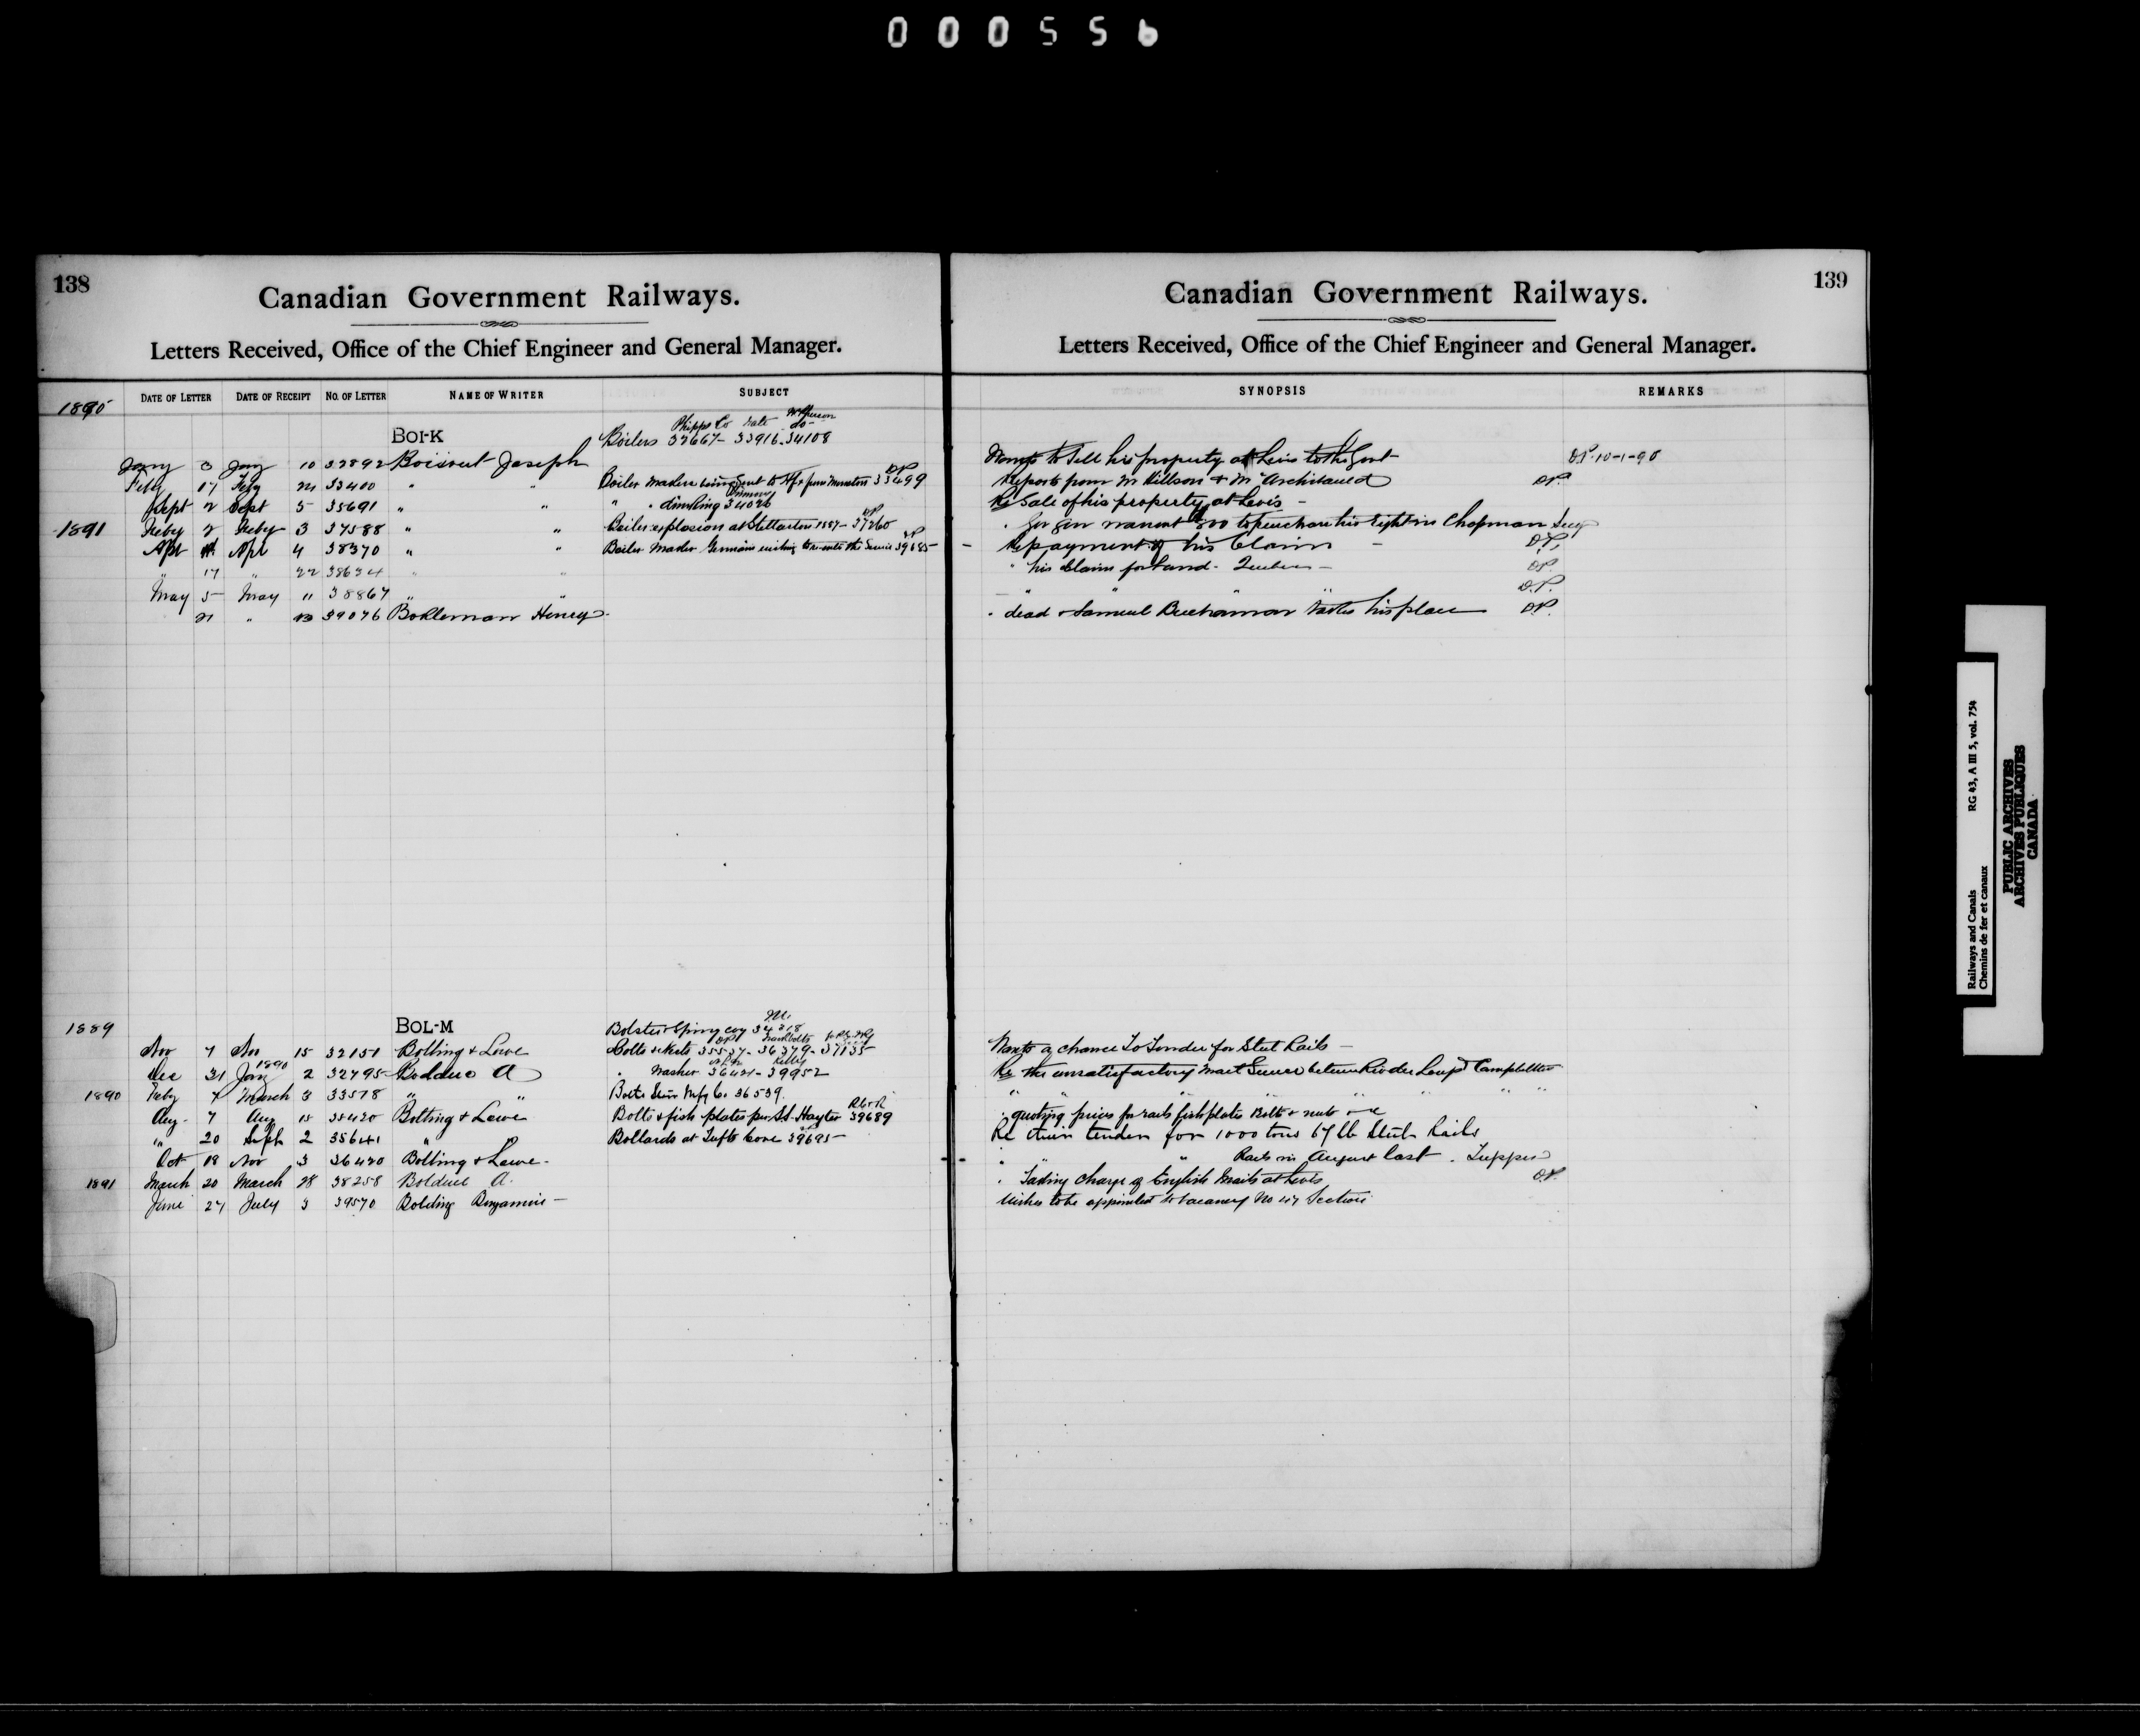 000556
138
Canadian Government Railways.
Letters Received, Office of the Chief Engineer and General Manager.
DATE OF LETTER DATE OF RECEIPT NO. OF LETTER NAME OF WRITER SUBJECT
1890
BOI-K Boilers 32667- 33916-34108
Jany 3 Jany 10 32892 Boisvert Joseph
Feby 17 Feby 24 33400 " " Boiler makers being sent to from Moncton 33499
Sept 2 Sept 5 35691 " " " 34026
1891 Feby 2 Feby 3 37588 " " Boiler explosion at Stellarton 1887- 37260
Apl Apl 4 38370 " " Boiler Maker the Service 39685-
" 17 " 22 38634 " "
May 5- May 11 38867 " "
21 " 39076 Bokleman Henry
1889 BOL-M Bolster Spring coy 34218
Nov 7 Nov 15 32151 Bolling & Lowe Bolts & Nuts 35537- 36379- 37135
Dec 31 Jany 1890 2 32795- Bolduc A " Washer 36421- 39952
1890 Feby 4 March 3 33578 " " Bolts Mfg Co. 36539.
Aug. 7 Aug 18 35420 Bolling & Lowe Bolts & fish plates per S.S. Hayter 39689
" 20 Sept 2 35641 " Bollards at Tufts Cove 39695-
Oct 18 Nov 3 36420 Bolling & Lowe-
1891 March 20 March 28 38258 Bolduc A.
June 27 July 3 39570 Bolding Benjamin-
139
Canadian Government Railways.
Letters Received, Office of the Chief Engineer and General Manager.
SYNOPSIS REMARKS
Wants to Sell his property at Levis to the Govt D.P. 10-1-90
Reports from Mr Killson & Mr Archibald D.P.
Re Sale of his property at Levis -
" to purchase his right in Chapman
Re payment of his Claim - D.P.
" his Claim for Land - Quebec - D.P.
" " " D.P.
" dead & Samuel Buchanan takes his place D.P.
Wants a chance To Tender for Steel Rails -
Re the unsatisfactory Mail Service between Riv du Loup & Campbellton
" " " " " "
" quoting prices for rails fishplates Bolts & nuts
Re their tender for 1000 tons 67 lb Steel Rails
" " Rails in August last. Tupper
" Taking charge of English Mails at Levis D.P.
Wishes to be appointed to vacancy No 47 Section
Railways and Canals RG 43, A III 5, vol. 754
Chemins de fer et canaux
PUBLIC ARCHIVES
ARCHIVES PUBLIQUES
CANADA